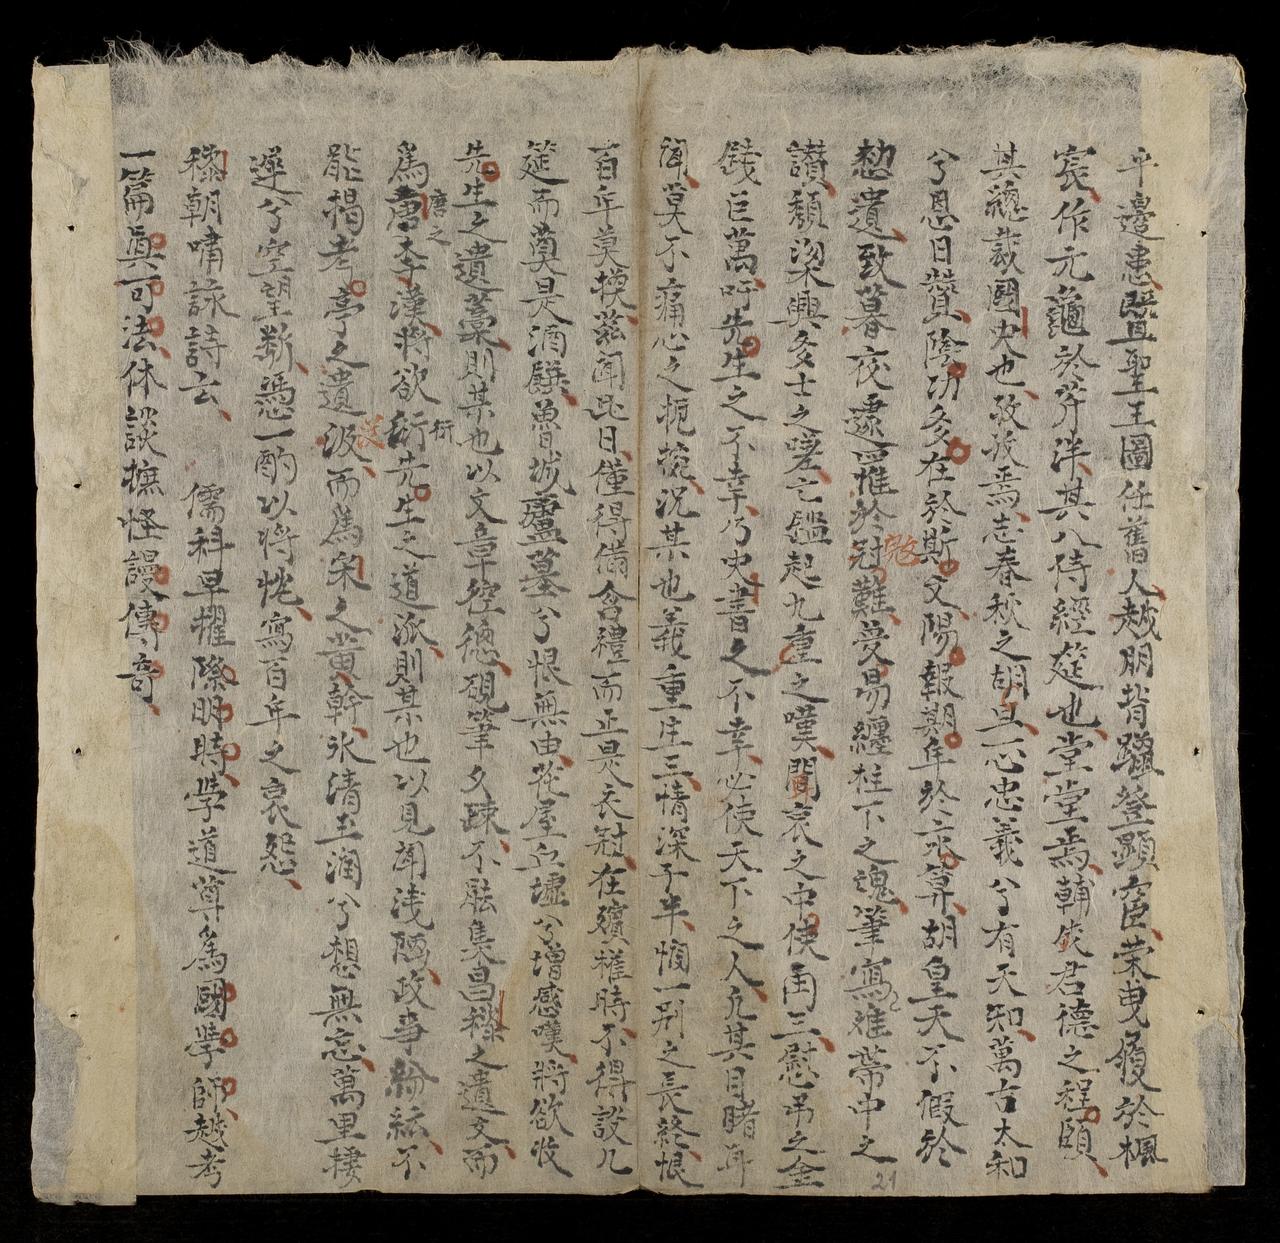 平邉患曁聖王圖任舊人越朋背躐登顯宦榮曳履於楓
宸作元龜於芹泮其入侍經筵也堂堂焉輔矣君德之程頤
其總裁國史也孜孜焉志春秋之胡旦一心忠義兮有天知萬古太和
兮愚日贊陰功多在於斯文陽報期年於永算胡皇天不假於
憗遺致暮夜遽罹於冠難夢易纏柱下之魂筆寫帷幕中之
讃頽梁興多士之嗟亡鑑起九重之嘆聞哀之中使囬三慰吊之金
錢巨萬吁先生之不幸乃史書之不幸必使天下之人凢其目睹耳
聞莫不痛心之扼捥况某也義重生三情深子半悃一別之長終恨
百年莫挽茲聞是日僅得備含禮而正是衣冠在殯權時不得設几
筵而奠是酒饌魯城廬墓兮恨無由花屋丘墟兮增感嘆將欲收
先生之遺藁則某也以文章倥偬硯筆久踈不能集昌𥠖之遺文而
爲唐李漢將欲衍先生之道派則某也以見聞浅陋政事紛紜不
能揭考亭之遺汲而爲宋之黄幹氷清玉潤兮想無忘萬里摟
遅兮空望斷憑一酌以將恍寫百年之哀怨
穆朝嘯詠詩云 儒科早擢際明時學道尊爲國學師越考
一篇真可法休談摭怪謾傳奇
唐之
衍
21